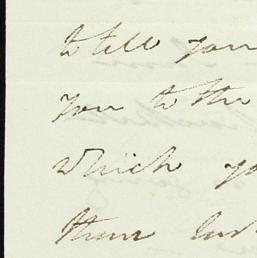 to tell you
you to the
which yo
them las